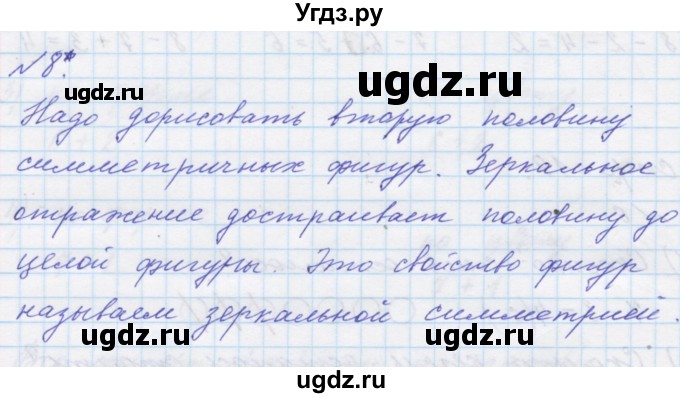 Угдз.ру
№8*.
ugdz.ru
Надо дорисовать вторую половину
симметричных фигур. Зеркальное
отражение достраивает половину до
целой фигуры. Это свойство фигур
называем зеркальной симметрией.
ugdz.ru
ugdz.ru
ugdz.ru
ugdz.ru
ugdz.ru
ugdz.ru
ugdz.ru